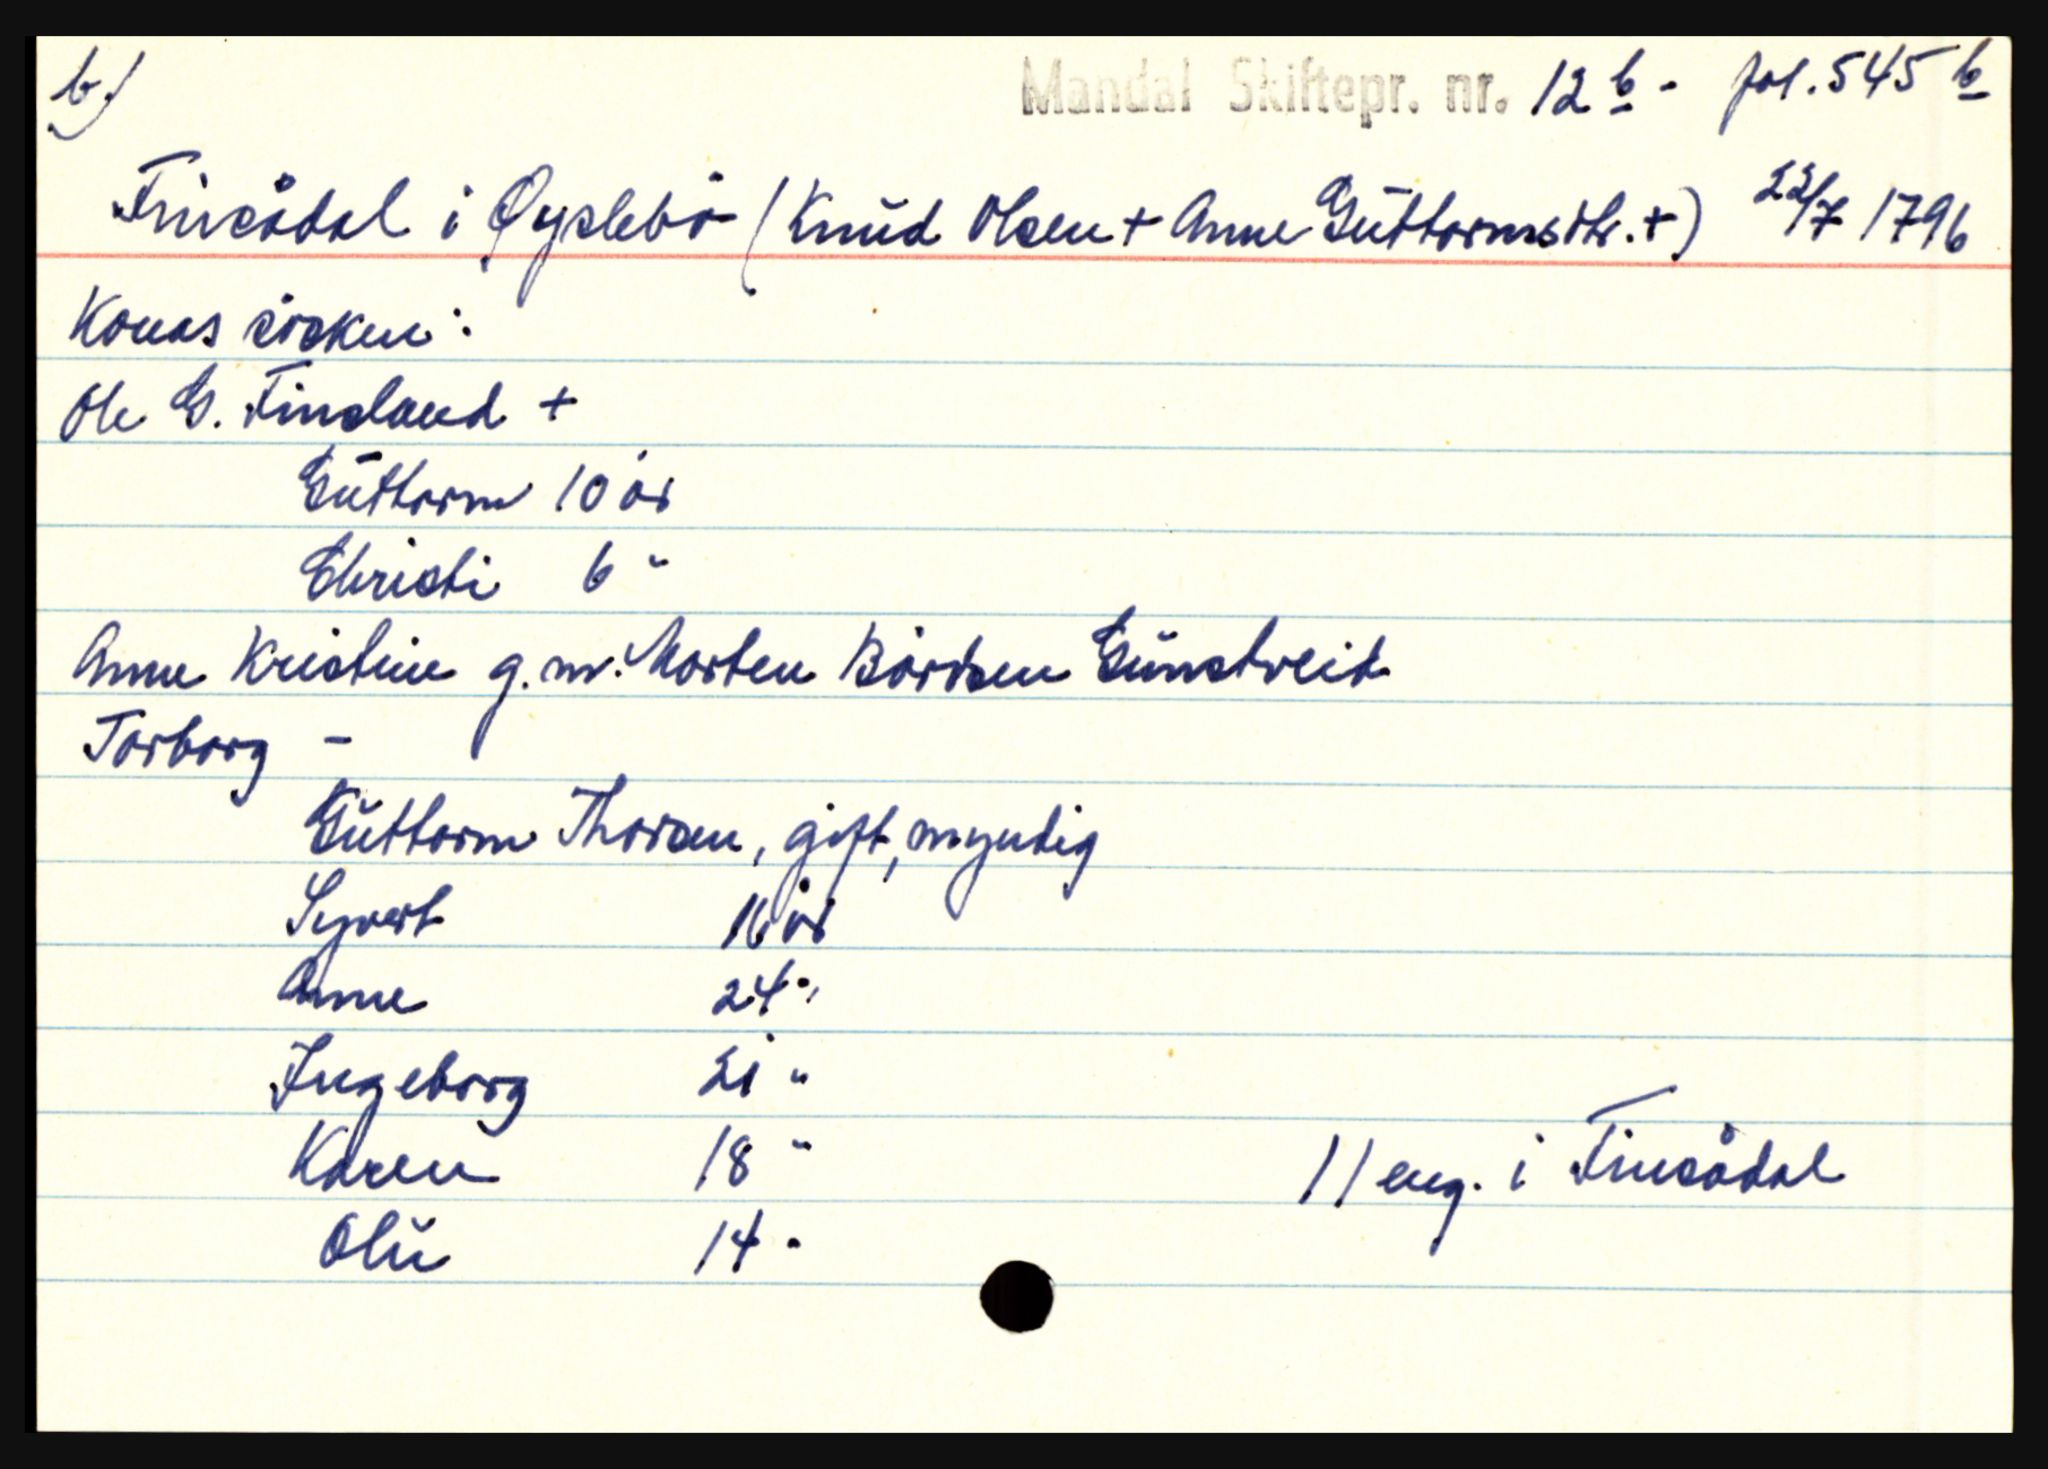 b)
Mandal Skiftepr. nr. 12 b - fol. 545 b
Finsådal i Øyslebö (Knud Olsen + Anne Guttormsdtr. +) 22/7 1796
Konas søsken:
Ole G. Finsland +
Guttorm 10 år
Christi 6 "
Anne Kristine g.m. Morten Bårdsen Gunstveit
Torborg -
Guttorm Thorsen, gift, myndig
Syvert 16 år
Anne 24 "
Ingeborg 21 "
Karen 18 "
Olu 14 "
11 eng. i Finsådal